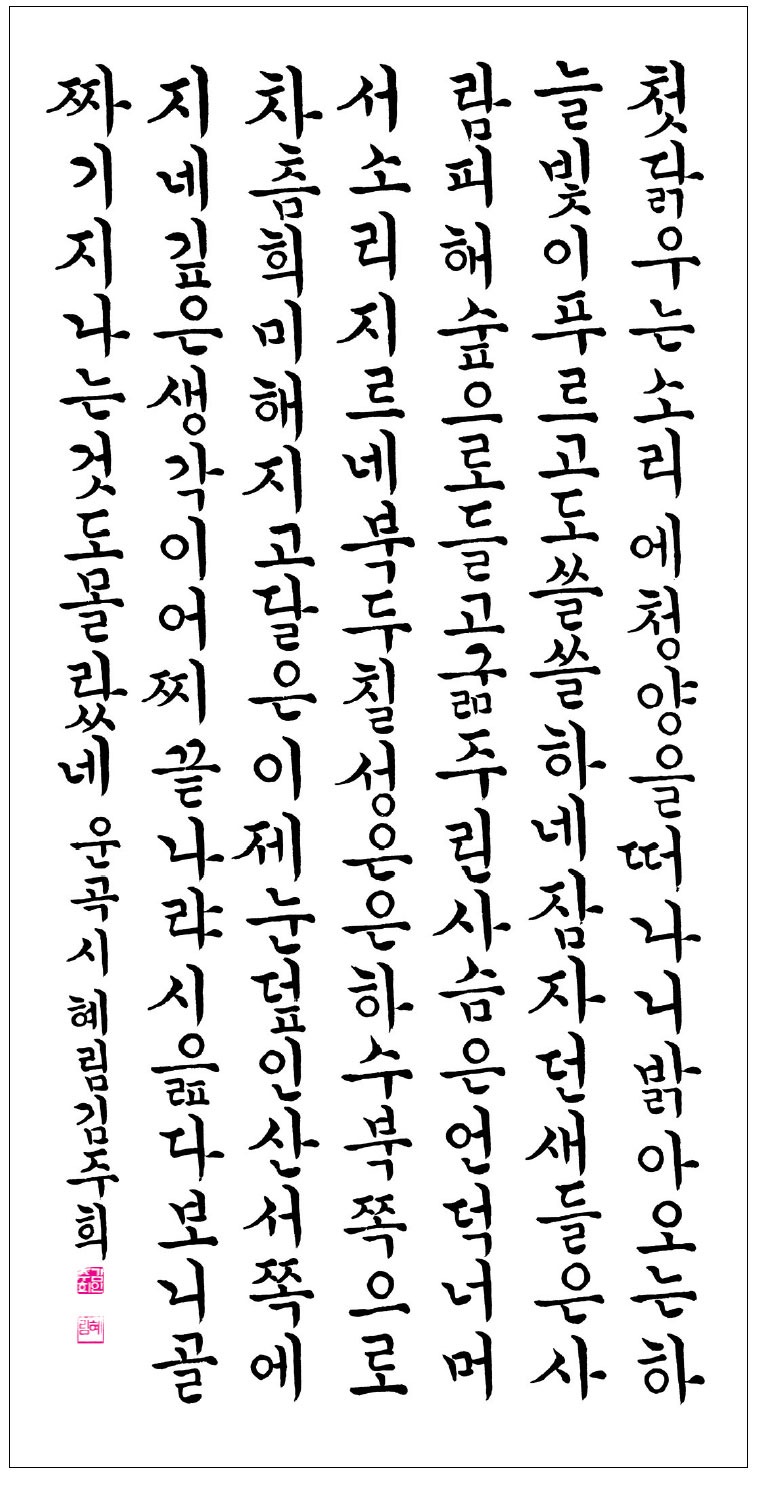 첫닭우는소리에청양을떠나니밝아오는하
늘빛이푸르고도쓸쓸하네잠자던새들은사
람피해숲으로들고굶주린사슴은언덕너머
서소리지르네북두칠성은은하수북쪽으로
차츰희미해지고달은이제눈덮인산서쪽에
지네깊은생각이어찌끝나랴시읊다보니골
짜기지나는것도몰랐네 운곡시 혜림김주희
혜림